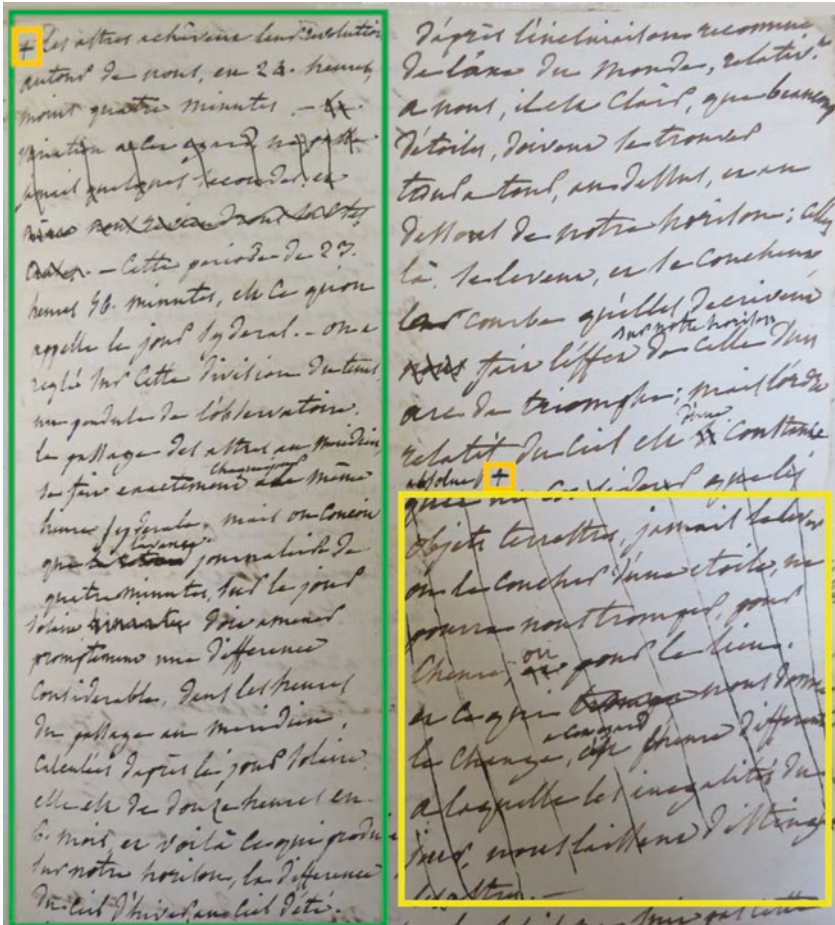 + Les astres achèvent leur revolution
autour de nous, en 24. heures,
moins quatre minutes. —
variation a cet egard ne
quelques secondes, en

— Cette periode de 23.
heures 56. minutes, est ce qu'on
appelle le jour syderal. — on a
reglé sur cette division du tems,
une pendule de l'observatoire.
le passage des astres au meridien,
se fait exactement chaque jour a la même
heure syderale, mais on conçoit
que l'avance journaliere de
quatre minutes, sur le jour
solaire doit amener
promptement une difference
considerable, dans les heures
du passage au meridien,
calculées d'après le jour solaire.
elle est de douze heures en
6. mois, et voilà ce qui produit
sur notre horison, la difference
du ciel d'hiver, au ciel d'été.
d'après l'inclinaison reconnue
de l'axe du monde, relativ.t
a nous, il est clair, que beaucoup
d'étoiles, doivent se trouver
tour a tour, au dessus, et au
dessous de notre horison; celles
là se levent, et se couchent
leur courbe qu'elles decrivent
sur notre horison
fait l'effet de celle d'un
arc de triomphe; mais l'ordre
relatif du ciel est d'une constance
absolue +
que les
objets terrestres, jamais le lever
ou le coucher d'une etoile, ne
pourra nous tromper, pour
l'heure, ou pour le lieu.
et ce qui nous donne
le change, a cet egard, est l'heure differente
a laquelle les inegalités du
jour, nous laissent distinguer
les astres. —